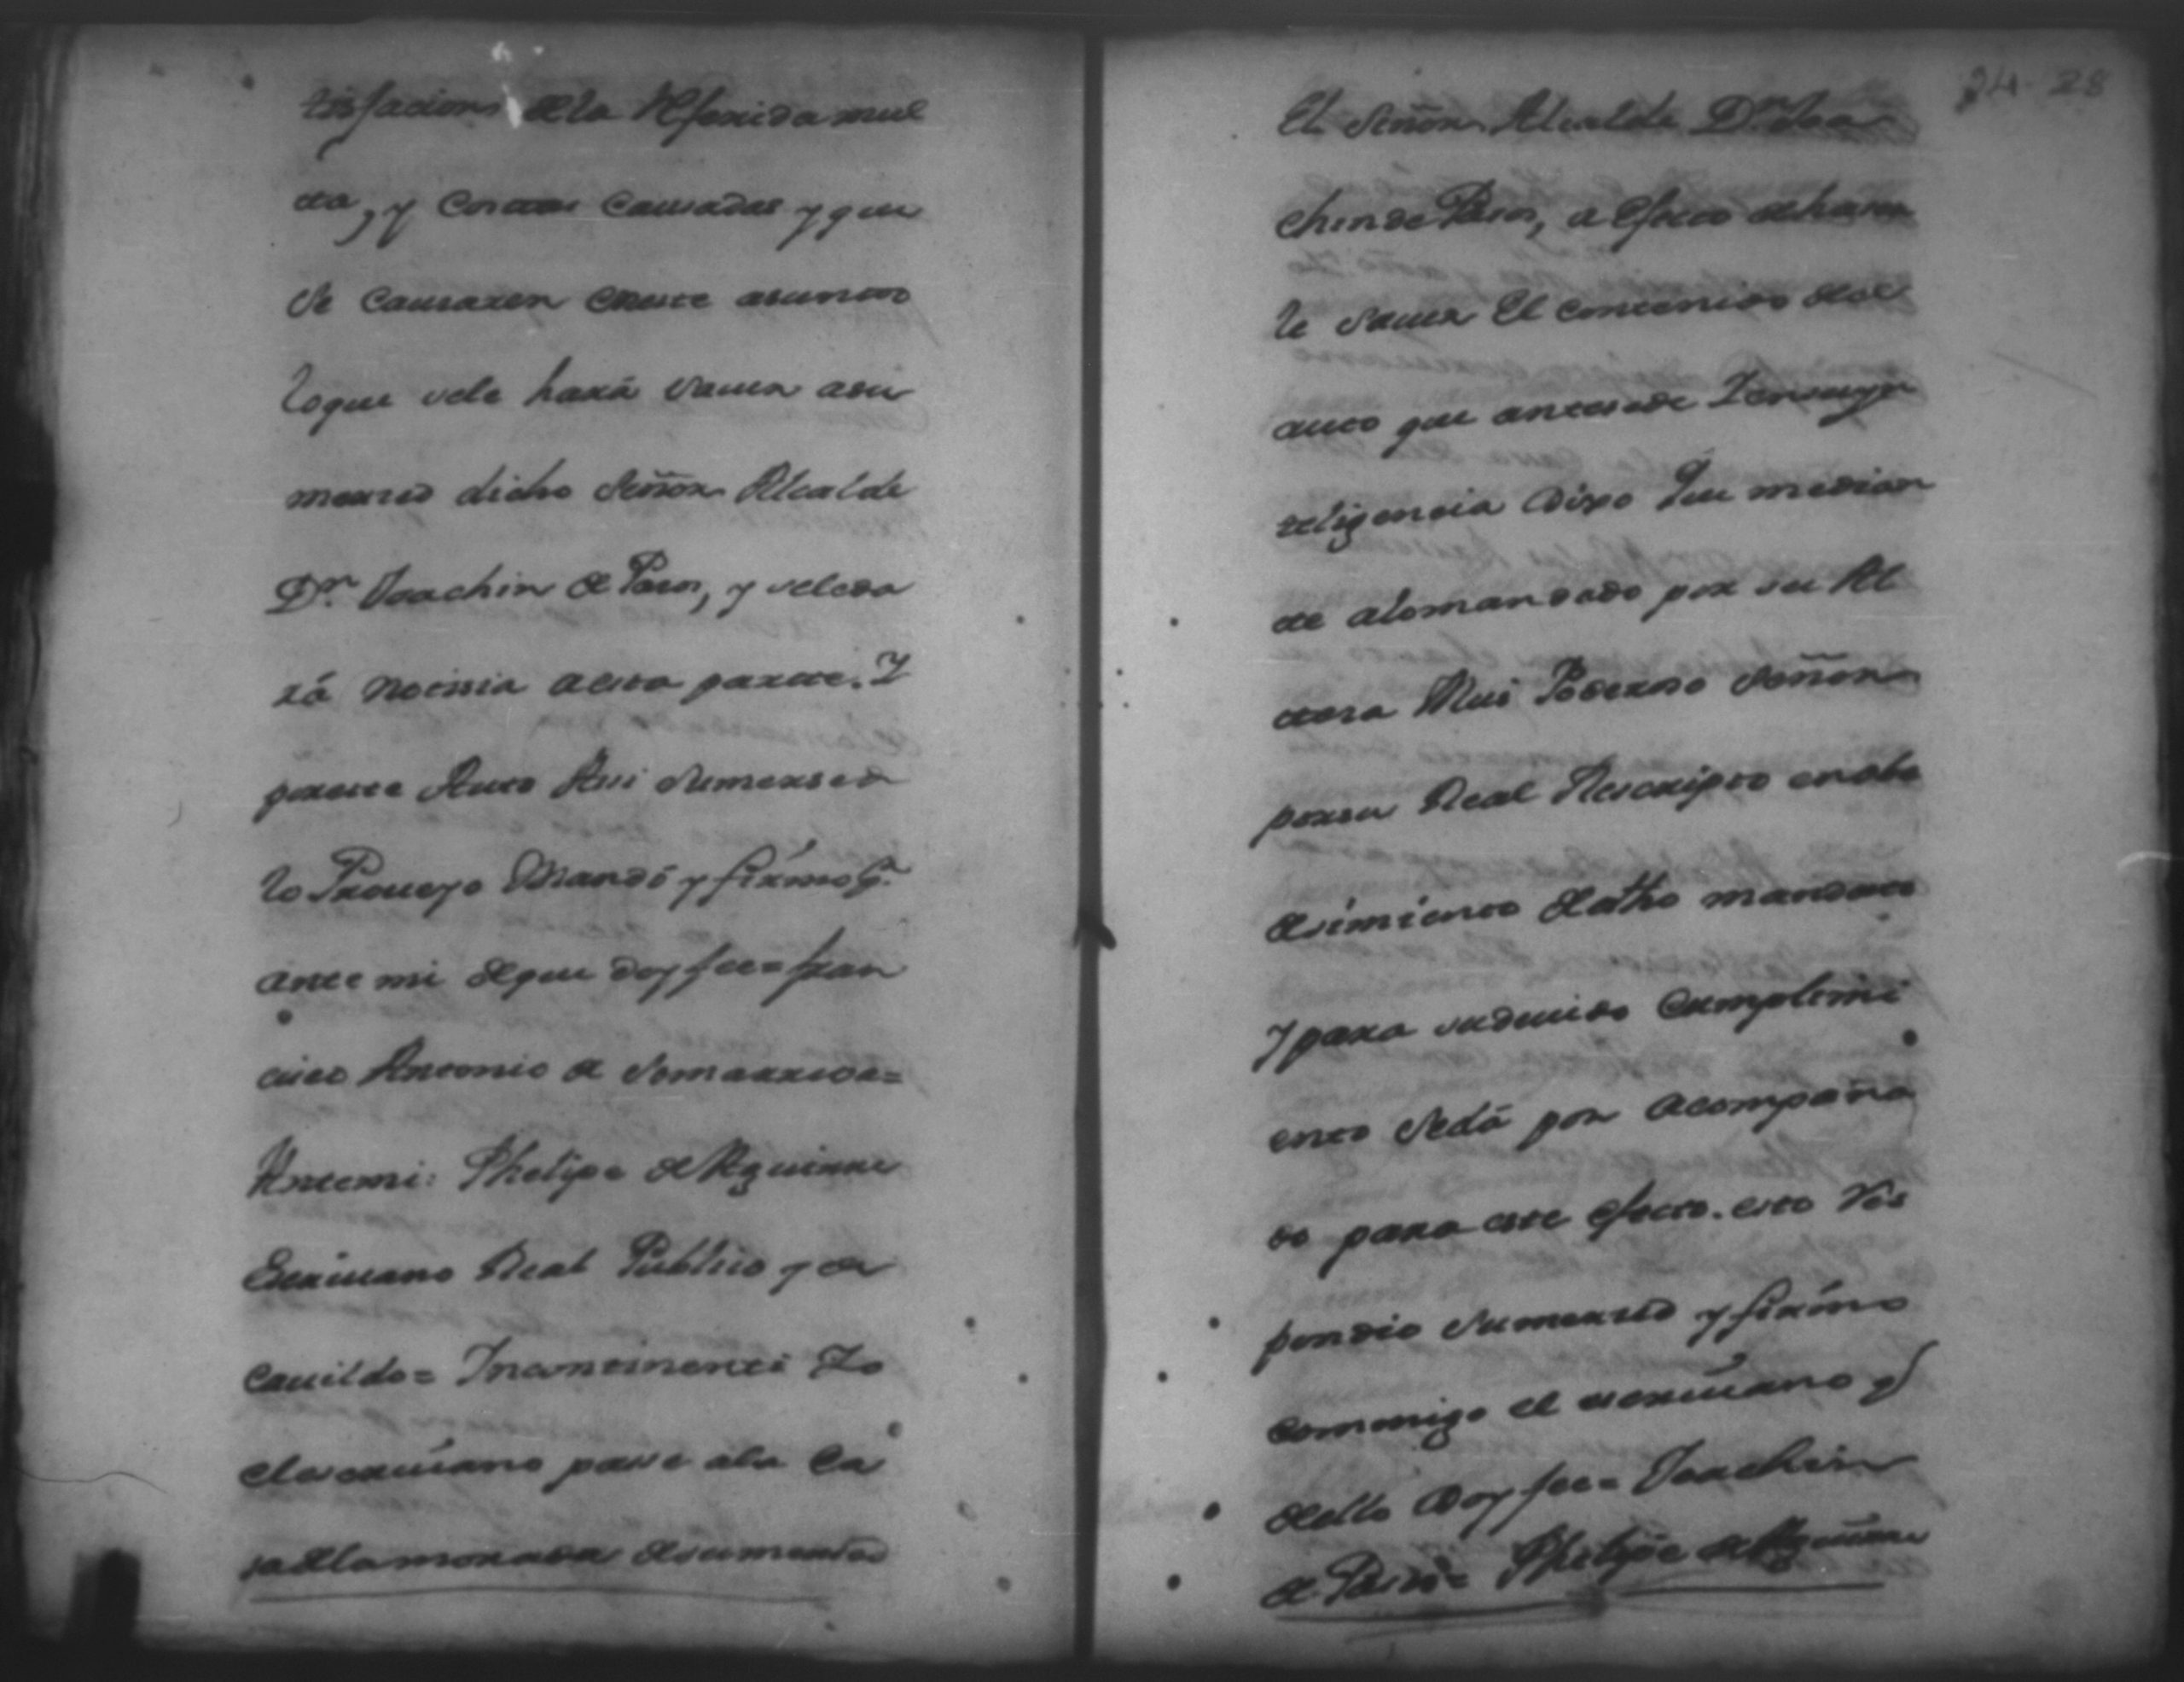 tisfacion de la Referida mul
ta, y Costas Causadas y que
se Causaren eneste asumto
loque sele hará sauer asu
merced dicho Señor Alcalde
Dn. Joachin de Pasos, y seleda
rá noticia aesta parte. Y
poreste Auto Assi sumersed
lo Proueyo Mandó y firmó
ante mi dequedoy fee = fran
cisco Antonio de Somarriva =
Antemi: Phelipe de Aguirre
Escriuano Real Publico y de
Cauildo = Incontinenti Yo
elescriuano passe ala Ca
sa dela morada desumersed
24 28
El Señor Alcalde Dn. Joa
chin de Pasos, a efecto de haser
le sauer El contenido del
auto que antesede Yensuyn
teligencia Dixo Que median
te alomandado por su Al
tesa Mui Poderoso Señor
porsu Real Rescripto enobe
desimiento dedicho mandato
Y para sudeuido Cumplimi
ento Sedá por acompaña
do para este efecto. esto Res
pondio sumersed y firmó
commigo el escriuano q
dello Doy fee = Joachin
de Pasos = Phelipe de Aguirre